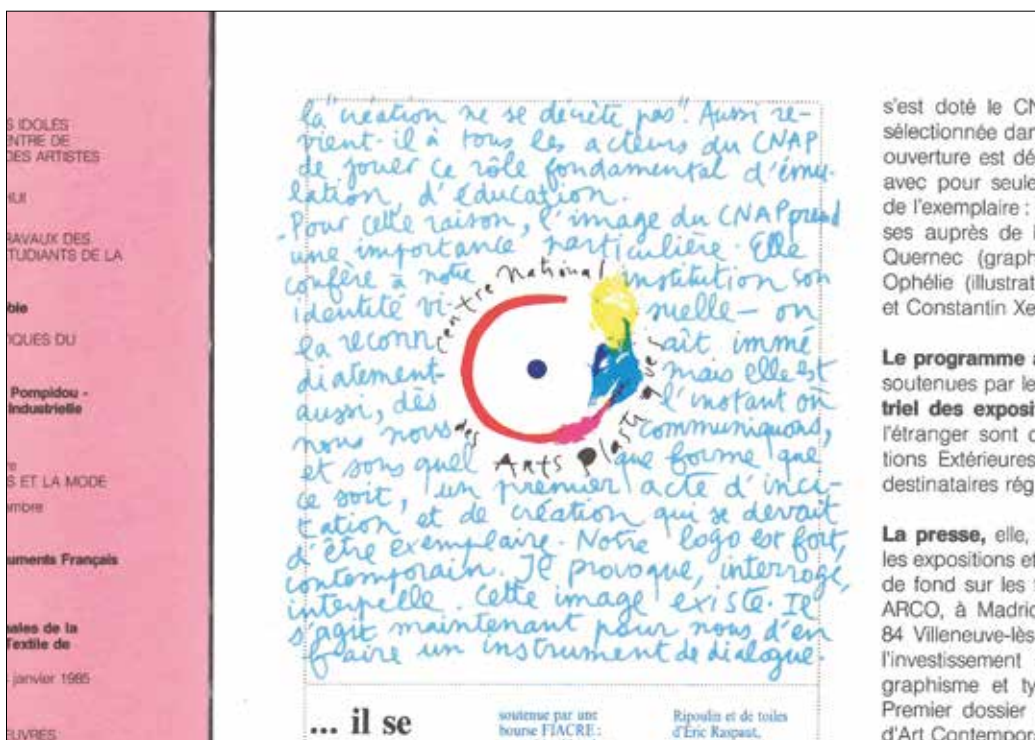 S IDOLES
NTRE DE
DES ARTISTES
HUI
RAVAUX DES
TUDIANTS DE LA
bie
IQUES DU
Pompidou -
Industrielle
re
S ET LA MODE
embre
uments Français
nales de la
Textile de
janvier 1985
ŒUVRES
la création ne se décrète pas". Aussi re-
vient-il à tous les acteurs du CNAP
de jouer ce rôle fondamental d'ému-
lation, d'éducation.
Pour cette raison, l'image du CNAP prend
une importance particulière. Elle
confère à notre institution son
identité vi- suelle — on
la reconn aît immé
diatement mais elle est
aussi, dès l'instant où
nous nous communiquons,
et sous quel que forme que
ce soit, un premier acte d'inci-
tation et de création qui se devait
d'être exemplaire. Notre logo est fort,
contemporain. Il provoque, interroge,
interpelle. Cette image existe. Il
s'agit maintenant pour nous d'en
faire un instrument de dialogue.
centre national
des Arts Plastiques
... il se
soutenue par une
bourse FIACRE :
Ripoulin et de toiles
d'Éric Raspaut,
s'est doté le CN
sélectionnée dan
ouverture est dé
avec pour seule
de l'exemplaire :
ses auprès de l
Quernec (graph
Ophélie (illustrat
et Constantin Xe
Le programme a
soutenues par le
triel des exposit
l'étranger sont d
tions Extérieures
destinataires rég
La presse, elle,
les expositions et
de fond sur les
ARCO, à Madrid
84 Villeneuve-lès
l'investissement
graphisme et ty
Premier dossier
d'Art Contempor